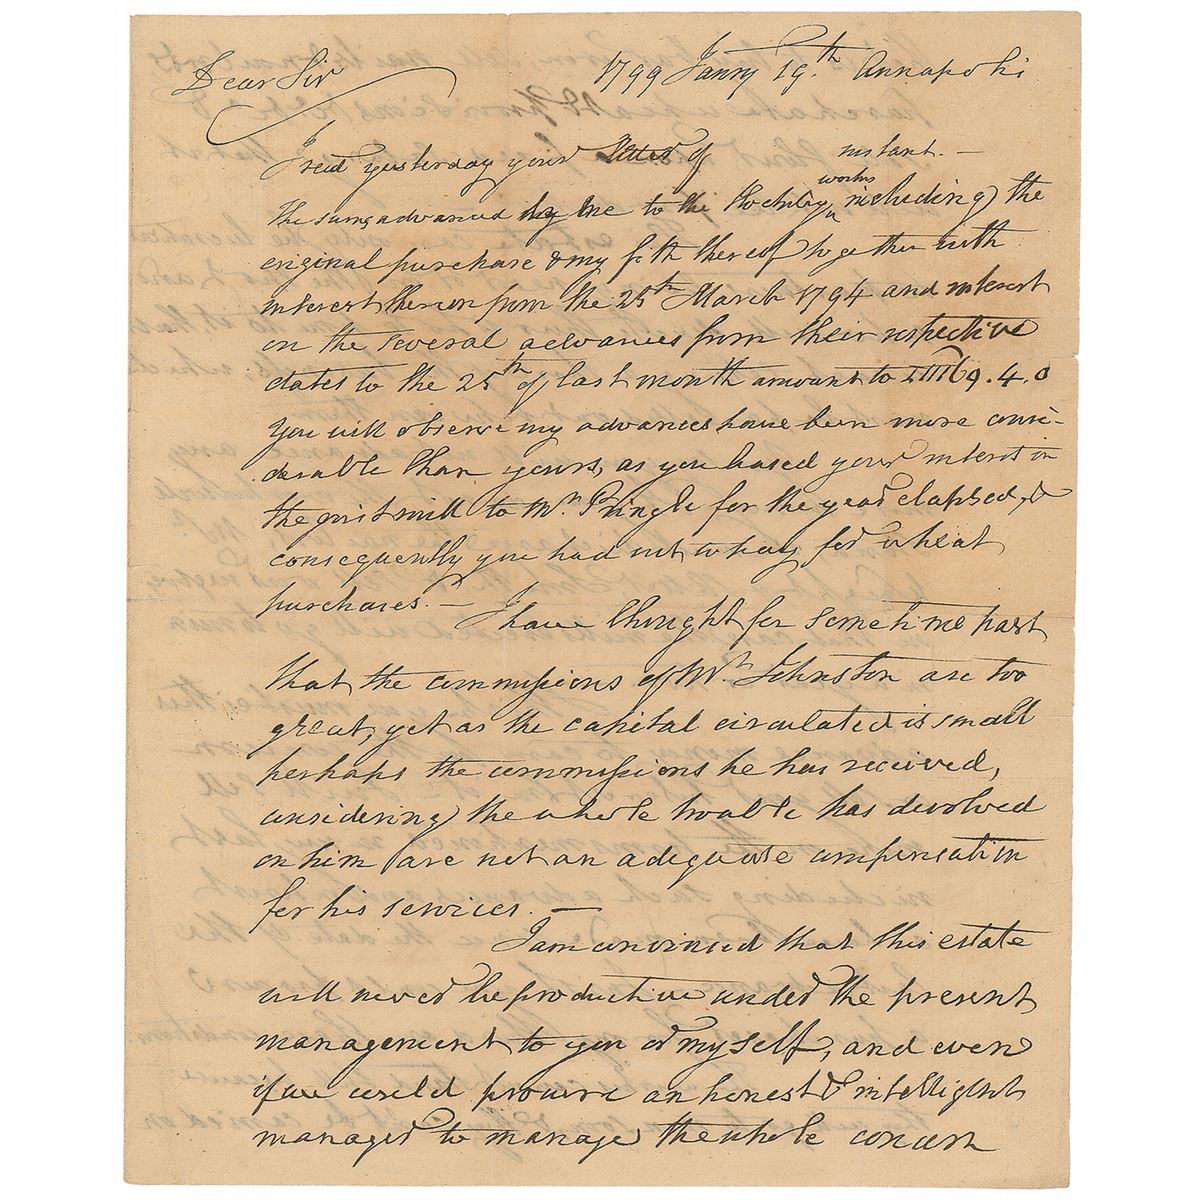 Dear Sir 1799 Janry 19.th Annapolis
I recd yesterday your letter of instant. —
works
The sums advanced by me to the Hockley including the
original purchase & my fifth thereof together with
interest thereon from the 25th March 1794 and interest
on the several advances from their respective
dates to the 25th of last month amount to 9.4.0
You will observe my advances have been more consi-
derable than yours, as you leased your interest in
the grist mill to Mr. Pringle for the year elapsed, &
consequently you had not to pay for wheat
purchases. —
I have thought for sometime past
that the commissions of Mr. Johnston are too
great, yet as the capital circulated is small
perhaps the commissions he has received,
considering the whole trouble has devolved
on him are not an adequate compensation
for his services. —
I am convinced that this estate
will never be productive under the present
management to you or myself, and even
if we could procure an honest & intelligent
manager to manage the whole concern